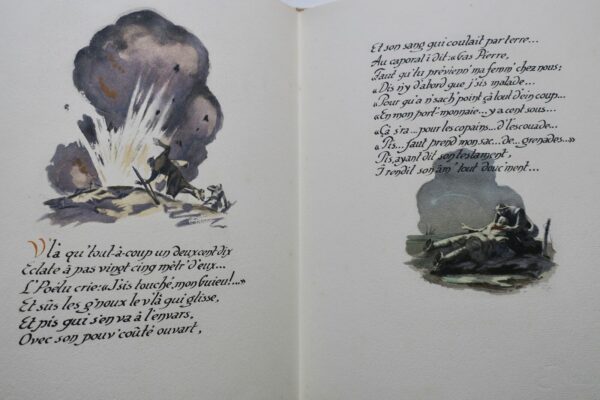 V'là qu'tout-à-coup un deux cent dix
Eclate à pas vingt cinq mètr' d'eux...
L'Poëlu crie: «J'sis touché, mon guieu!...»
Et sûs les g'noux le v'là qui glisse,
Et pis qui s'en va à l'envars,
Ovec son pouv' coûté ouvart,
Et son sang qui coulait par terre...
Au caporal i dit: «Gas Pierre,
«Faut qu'tu prévienn' ma femm' chez nous:
«Dis n'y d'abord que j'sis malade...
«Pour qu'a n'sach' point çà tout d'ein coup...
«En mon port'-monnaie... y a cent sous...
«Çà s'ra... pour les copains... d'l'escouade...
«Pis... faut prend' mon sac... de... grenades...»
Pis, ayant dit son testament,
I rendit son âm' tout douc'ment...